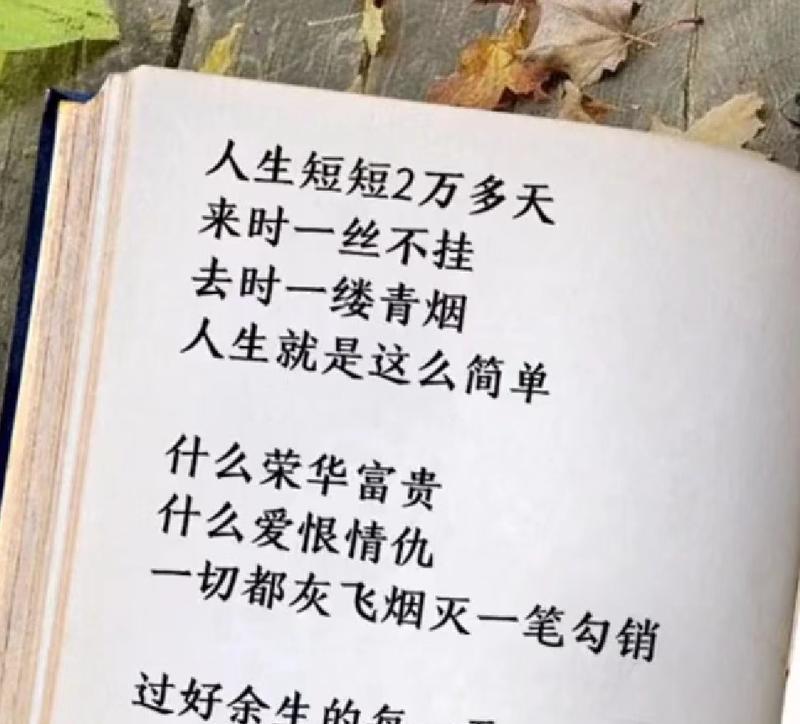 人生短短2万多天
来时一丝不挂
去时一缕青烟
人生就是这么简单
什么荣华富贵
什么爱恨情仇
一切都灰飞烟灭一笔勾销
过好余生的每一天